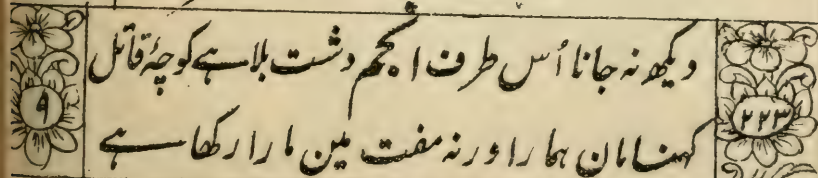 دیکھ نہ جانا اُس طرف انجم دشت بلا ہے کوچۂ قاتل
۹
۲۲۳
کہنا مان ہمارا ورنہ مفت مین مارا رکھا ہے